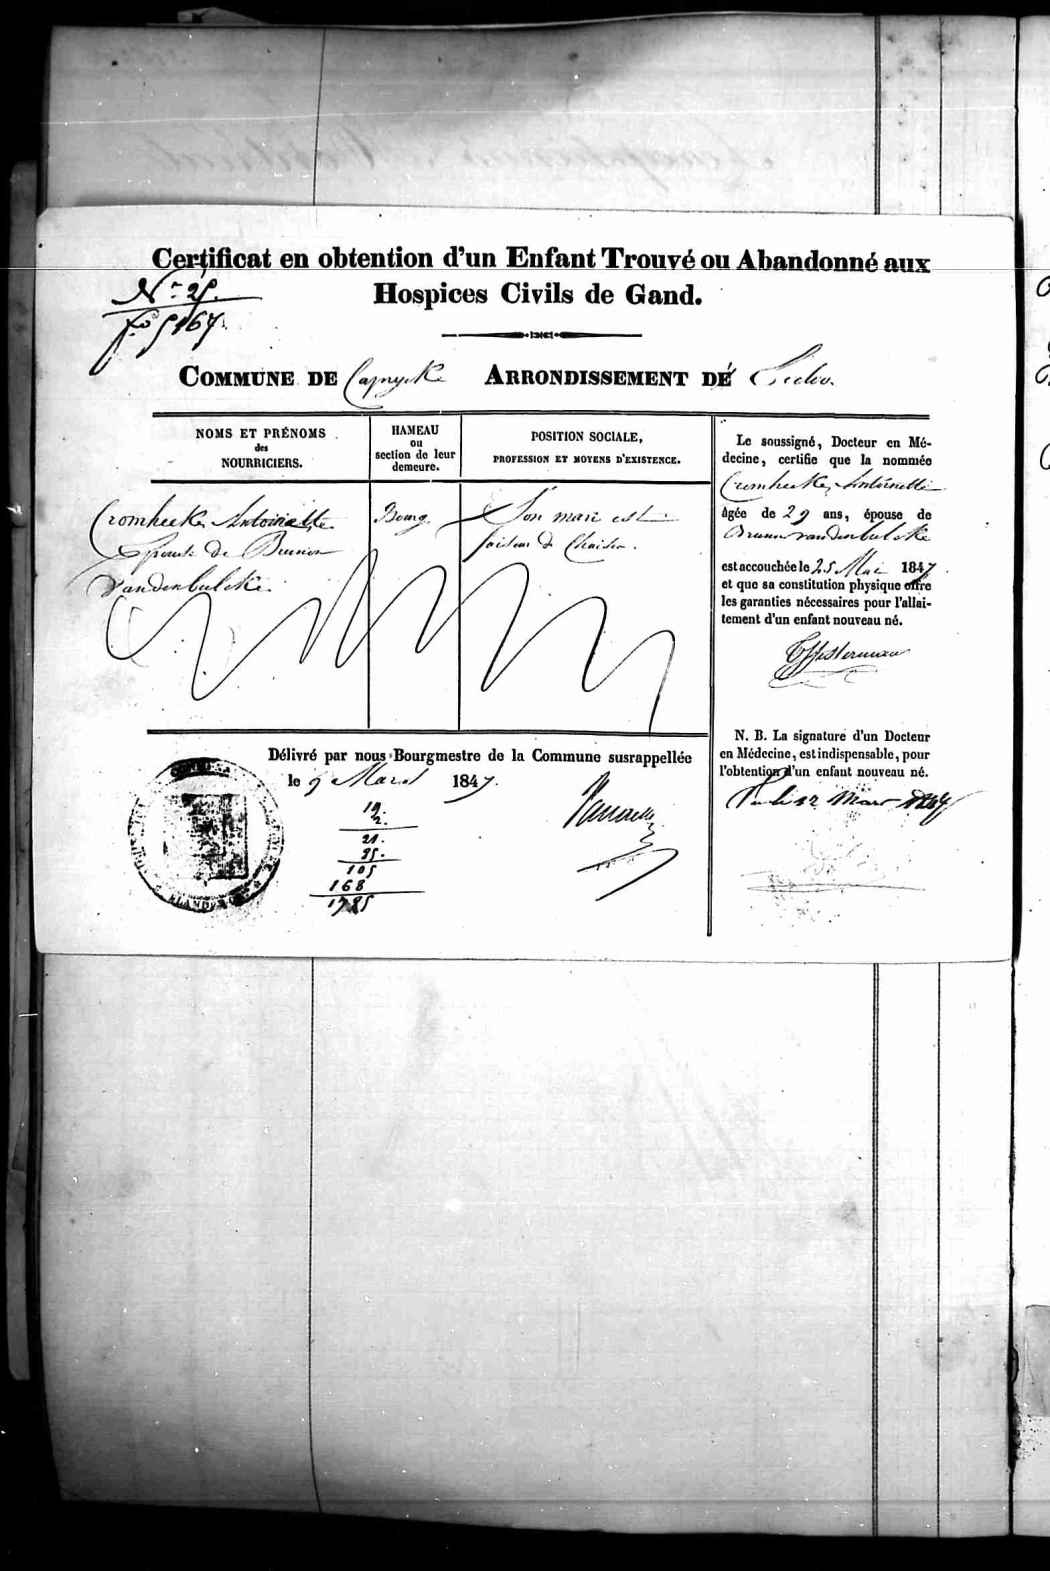 Certificat en obtention d'un Enfant Trouvé ou Abandonné aux
Hospices Civils de Gand.
N° 25.
f° 5167.
COMMUNE DE Caprycke ARRONDISSEMENT DE
NOMS ET PRÉNOMS
des
NOURRICIERS.
HAMEAU
ou
section de leur
demeure.
POSITION SOCIALE,
PROFESSION ET MOYENS D'EXISTENCE.
Cromheeke Antoinette
Epouse de Bruno
Vandenbulcke.
Bourg
Son mari est
faiseur de Chaises.
Le soussigné, Docteur en Mé-
decine, certifie que la nommée
Cromheeke, Antoinette
âgée de 29 ans, épouse de
Bruno vandenbulcke
est accouchée le 25 Mai 1847
et que sa constitution physique offre
les garanties nécessaires pour l'allai-
tement d'un enfant nouveau né.
N. B. La signature d'un Docteur
en Médecine, est indispensable, pour
l'obtention d'un enfant nouveau né.
12 Mars 1847
Délivré par nous Bourgmestre de la Commune susrappellée
le 9 Mars 1847.
19
2.
21.
85.
105
168
1785